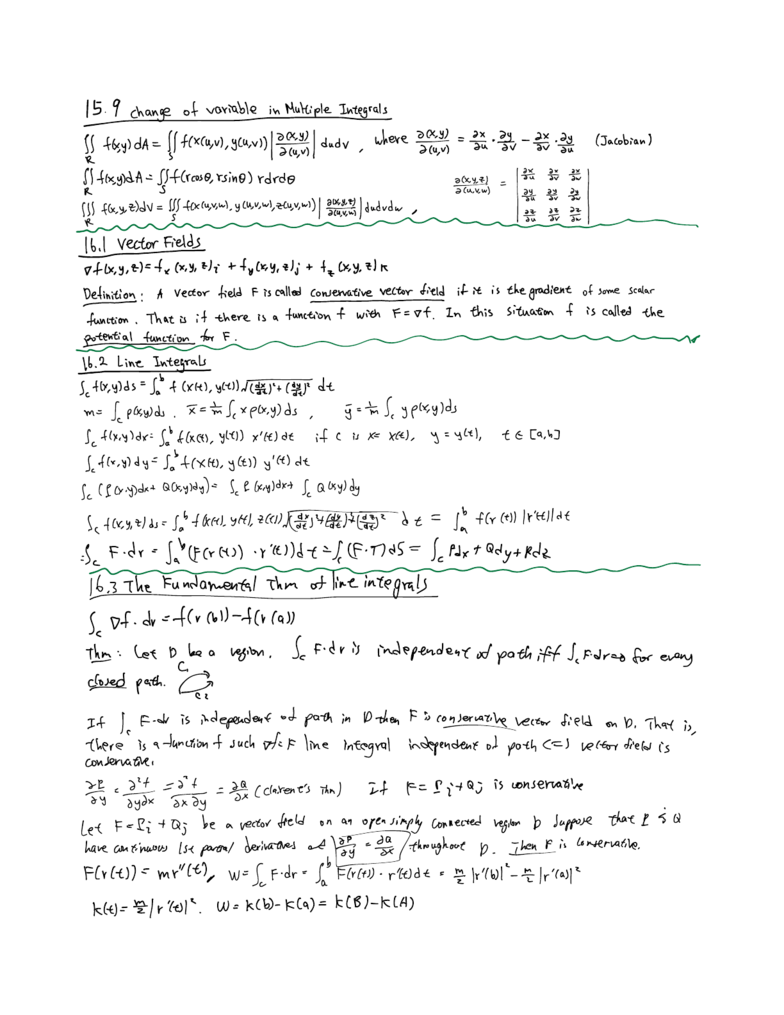 15.9 change of variable in Multiple Integrals
∬_R f(x,y) dA = ∬_S f(x(u,v), y(u,v)) |∂(x,y)/∂(u,v)| du dv , where ∂(x,y)/∂(u,v) = ∂x/∂u · ∂y/∂v − ∂x/∂v · ∂y/∂u (Jacobian)
∬_R f(x,y)dA = ∬_S f(r cosθ, r sinθ) r dr dθ
∂(x,y,z)/∂(u,v,w) = | ∂x/∂u ∂x/∂v ∂x/∂w ; ∂y/∂u ∂y/∂v ∂y/∂w ; ∂z/∂u ∂z/∂v ∂z/∂w |
∭_R f(x,y,z)dV = ∭_S f(x(u,v,w), y(u,v,w), z(u,v,w)) |∂(x,y,z)/∂(u,v,w)| du dv dw ,
16.1 Vector Fields
∇f(x,y,z) = f_x (x,y,z)i + f_y (x,y,z)j + f_z (x,y,z)k
Definition : A vector field F is called conservative vector field if it is the gradient of some scalar
function . That is if there is a function f with F = ∇f. In this situation f is called the
potential function for F.
16.2 Line Integrals
∫_C f(x,y) ds = ∫_a^b f (x(t), y(t)) √((dx/dt)² + (dy/dt)²) dt
m = ∫_C ρ(x,y) ds . x̄ = 1/m ∫_C x ρ(x,y) ds , ȳ = 1/m ∫_C y ρ(x,y) ds
∫_C f(x,y) dx = ∫_a^b f(x(t), y(t)) x'(t) dt if C is x = x(t), y = y(t), t ∈ [a,b]
∫_C f(x,y) dy = ∫_a^b f(x(t), y(t)) y'(t) dt
∫_C (P(x,y)dx + Q(x,y)dy) = ∫_C P(x,y)dx + ∫_C Q(x,y) dy
∫_C f(x,y,z) ds = ∫_a^b f(x(t), y(t), z(t)) √((dx/dt)² + (dy/dt)² + (dz/dt)²) dt = ∫_a^b f(r(t)) |r'(t)| dt
= ∫_C F · dr = ∫_a^b (F(r(t)) · r'(t)) dt = ∫_C (F·T) dS = ∫_C Pdx + Qdy + Rdz
16.3 The Fundamental Thm of line integrals
∫_C ∇f · dr = f(r(b)) − f(r(a))
Thm : Let D be a region, ∫_C F·dr is independent of path iff ∫_C F·dr=0 for every
closed path. C₁ C₂
If ∫_C F·dr is independent of path in D then F is conservative vector field on D. That is,
there is a function f such ∇f=F line integral independent of path <=> vector field is
conservative.
∂P/∂y = ∂²f/∂y∂x = ∂²f/∂x∂y = ∂Q/∂x (Clairent's Thm) If F = Pi + Qj is conservative
Let F = Pi + Qj be a vector field on an open simply connected region D suppose that P & Q
have continuous 1st partial derivatives and ∂P/∂y = ∂Q/∂x throughout D. Then F is conservative.
F(r(t)) = mr''(t), W = ∫_C F·dr = ∫_a^b F(r(t)) · r'(t) dt = m/2 |r'(b)|² − m/2 |r'(a)|²
K(t) = m/2 |r'(t)|². W = K(b) − K(a) = K(B) − K(A)